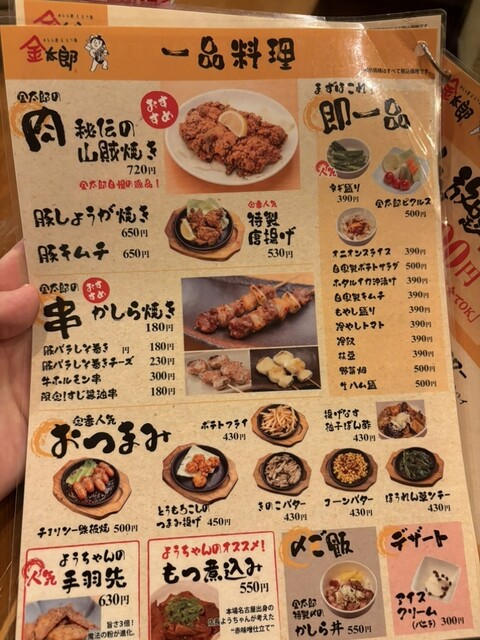 金太郎
一品料理
金太郎の
肉
おすすめ
秘伝の
山賊焼き
720円
金太郎自慢の逸品！
豚しょうが焼き
650円
豚キムチ 650円
定番人気
特製
唐揚げ
530円
まずはこれ！
即一品
人気
390円
金太郎ピクルス
500円
オニオンスライス 390円
自家製ポテトサラダ 500円
ホタルイカ沖漬け 390円
自家製キムチ 390円
もやし盛り 390円
冷やしトマト 390円
冷奴 390円
枝豆 390円
野菜畑 500円
生ハム盛 500円
金太郎の
串
おすすめ
かしら焼き
180円
豚バラしそ巻き 円
180円
豚バラしそ巻きチーズ 230円
牛ホルモン串 300円
限定!すじ醤油串 180円
定番人気
おつまみ
ポテトフライ
430円
揚げなす
柚子ぽん酢
430円
チョリソー鉄板焼 500円
とうもろこしの
つまみ揚げ 450円
きのこバター
430円
コーンバター
430円
ほうれん草ソテー
430円
ようちゃんの
人気
手羽先
630円
旨さ3倍！
魔法の粉が進化。
ようちゃんのオススメ！
もつ煮込み
550円
本場名古屋出身の
店長ようちゃんが考えた
"赤味噌仕立て"
〆ご飯
金太郎
特製〆の
かしら丼 550円
デザート
アイス
クリーム
(バニラ) 300円